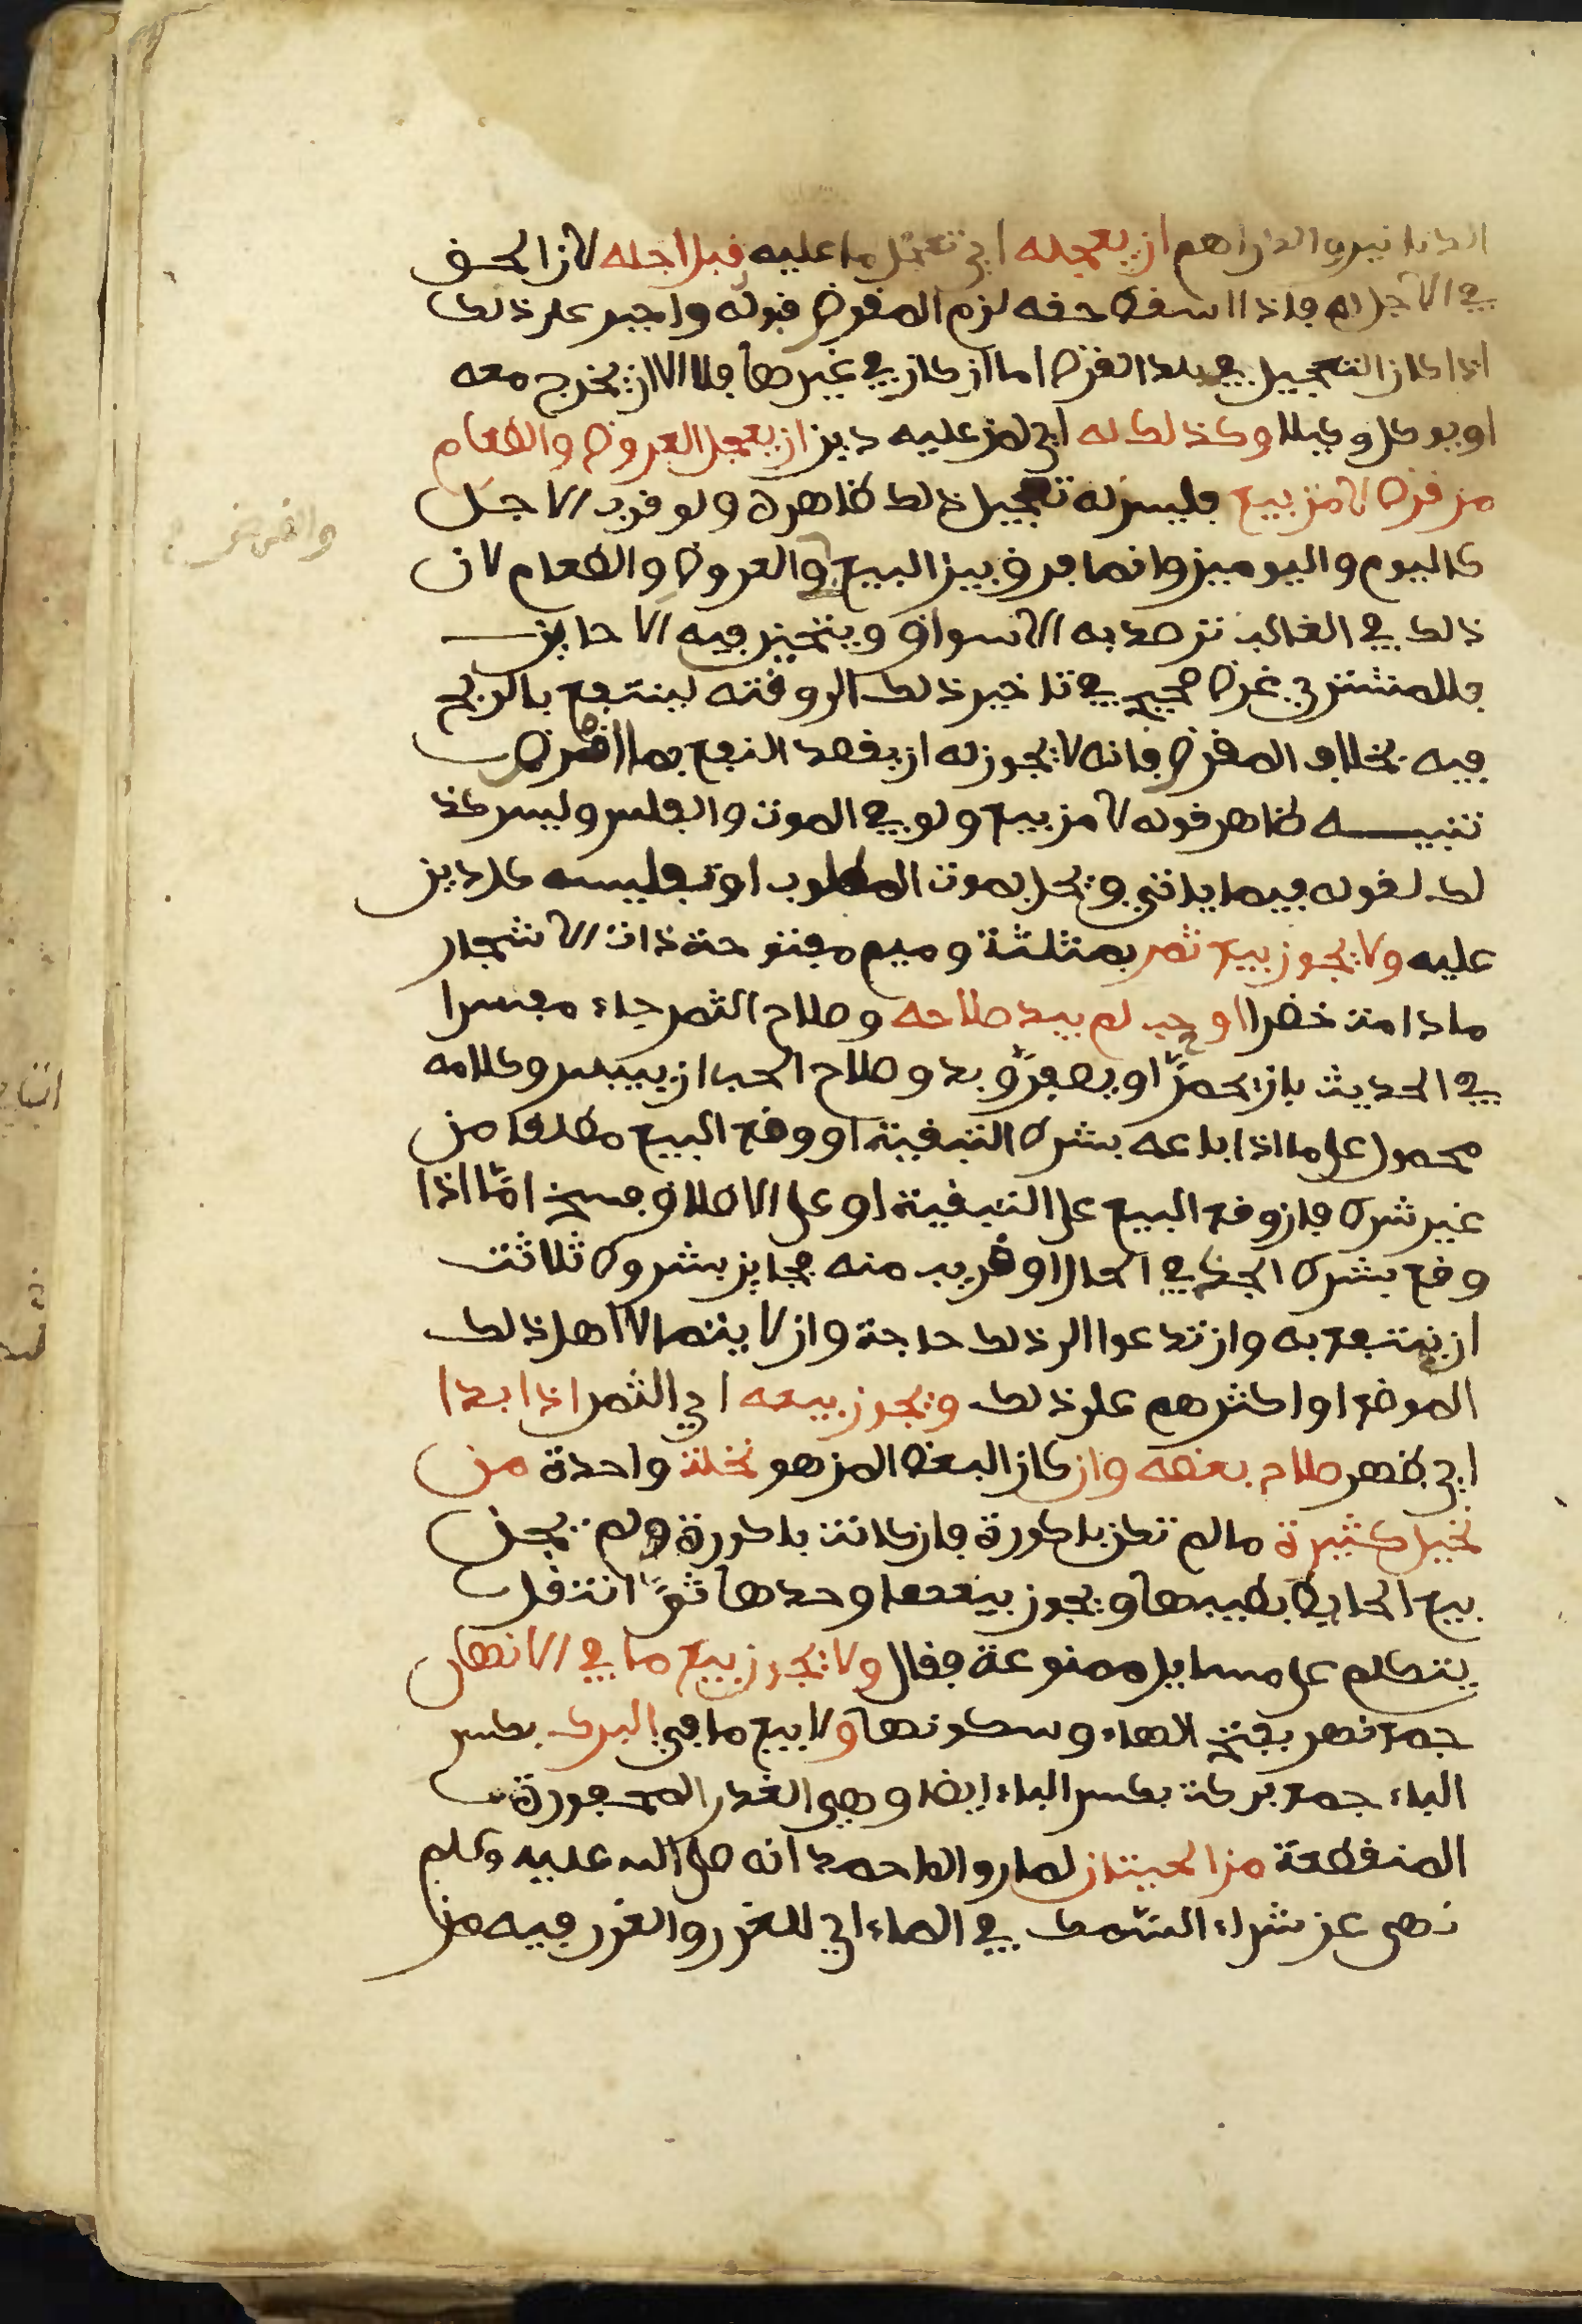 الدنانير والدراهم ان يعجله اي تعجل ما عليه قبل اجله لان الحق
في الاجل له فاذا اسقط حقه لزم المقرض قبوله واجبر على ذلك
اذا كان التعجيل في بلد القرض اما ان كان في غيرها فلا الا ان يخرج معه
او يوكل وكيلا وكذلك له اي لمن عليه دين ان يعجل العروض والطعام
من قرض لا من بيع فليس له تعجيل ذلك ظاهره ولو قرب الاجل
كاليوم واليومين وانما فرق بين البيع والعروض والطعام لان
ذلك في الغالب ترصد به الاسواق ويتحين فيه الاحاين
فللمشتري غرض صحيح في تاخير ذلك الى وقته لينتفع بالربح
فيه بخلاف المقرض فانه لا يجوز له ان يقصد النفع بما اقرض
تنبيه ظاهر قوله لا من بيع ولو في الموت والفلس وليس كذ
لك لقوله فيما ياتي ويحل بموت المطلوب او تفليسه كل دين
عليه ولا يجوز بيع ثمر بمثلثة وميم مفتوحة ذات الاشجار
ما دامت خضرا او حب لم يبد صلاحه وصلاح الثمر جاء مفسرا
في الحديث بان يحمرّ او يصفرّ وبدو صلاح الحب ان ييبس وكلامه
محمول على ما اذا باعه بشرط التبقية او وقع البيع مطلقا من
غير شرط فان وقع البيع على التبقية او على الاطلاق فسخ امّا اذا
وقع بشرط الجذ في الحال او قريب منه فجايز بشروط ثلاثة
ان ينتفع به وان تدعوا الى ذلك حاجة وان لا يتمالا اهل ذلك
الموضع او اكثرهم على ذلك ويجوز بيعه اي الثمر اذا بدا
اي ظهر صلاح بعضه وان كان البعض المزهو نخلة واحدة من
نخيل كثيرة ما لم تكن باكورة فان كانت باكورة ولم يجز
بيع الحايط بطيبها ويجوز بيعها وحدها ثمّ انتقل
يتكلم على مسايل ممنوعة فقال ولا يجوز بيع ما في الانهار
جمع نهر بفتح الهاء وسكونها ولا بيع ما في البرك بكسر
الباء جمع بركة بكسر الباء ايضا وهي الغدر المحفورة
المنقطعة من الحيتان لما رواه احمد انه صلى الله عليه وسلم
نهى عن شراء السّمك في الماء اي للغرر والغرر فيه من